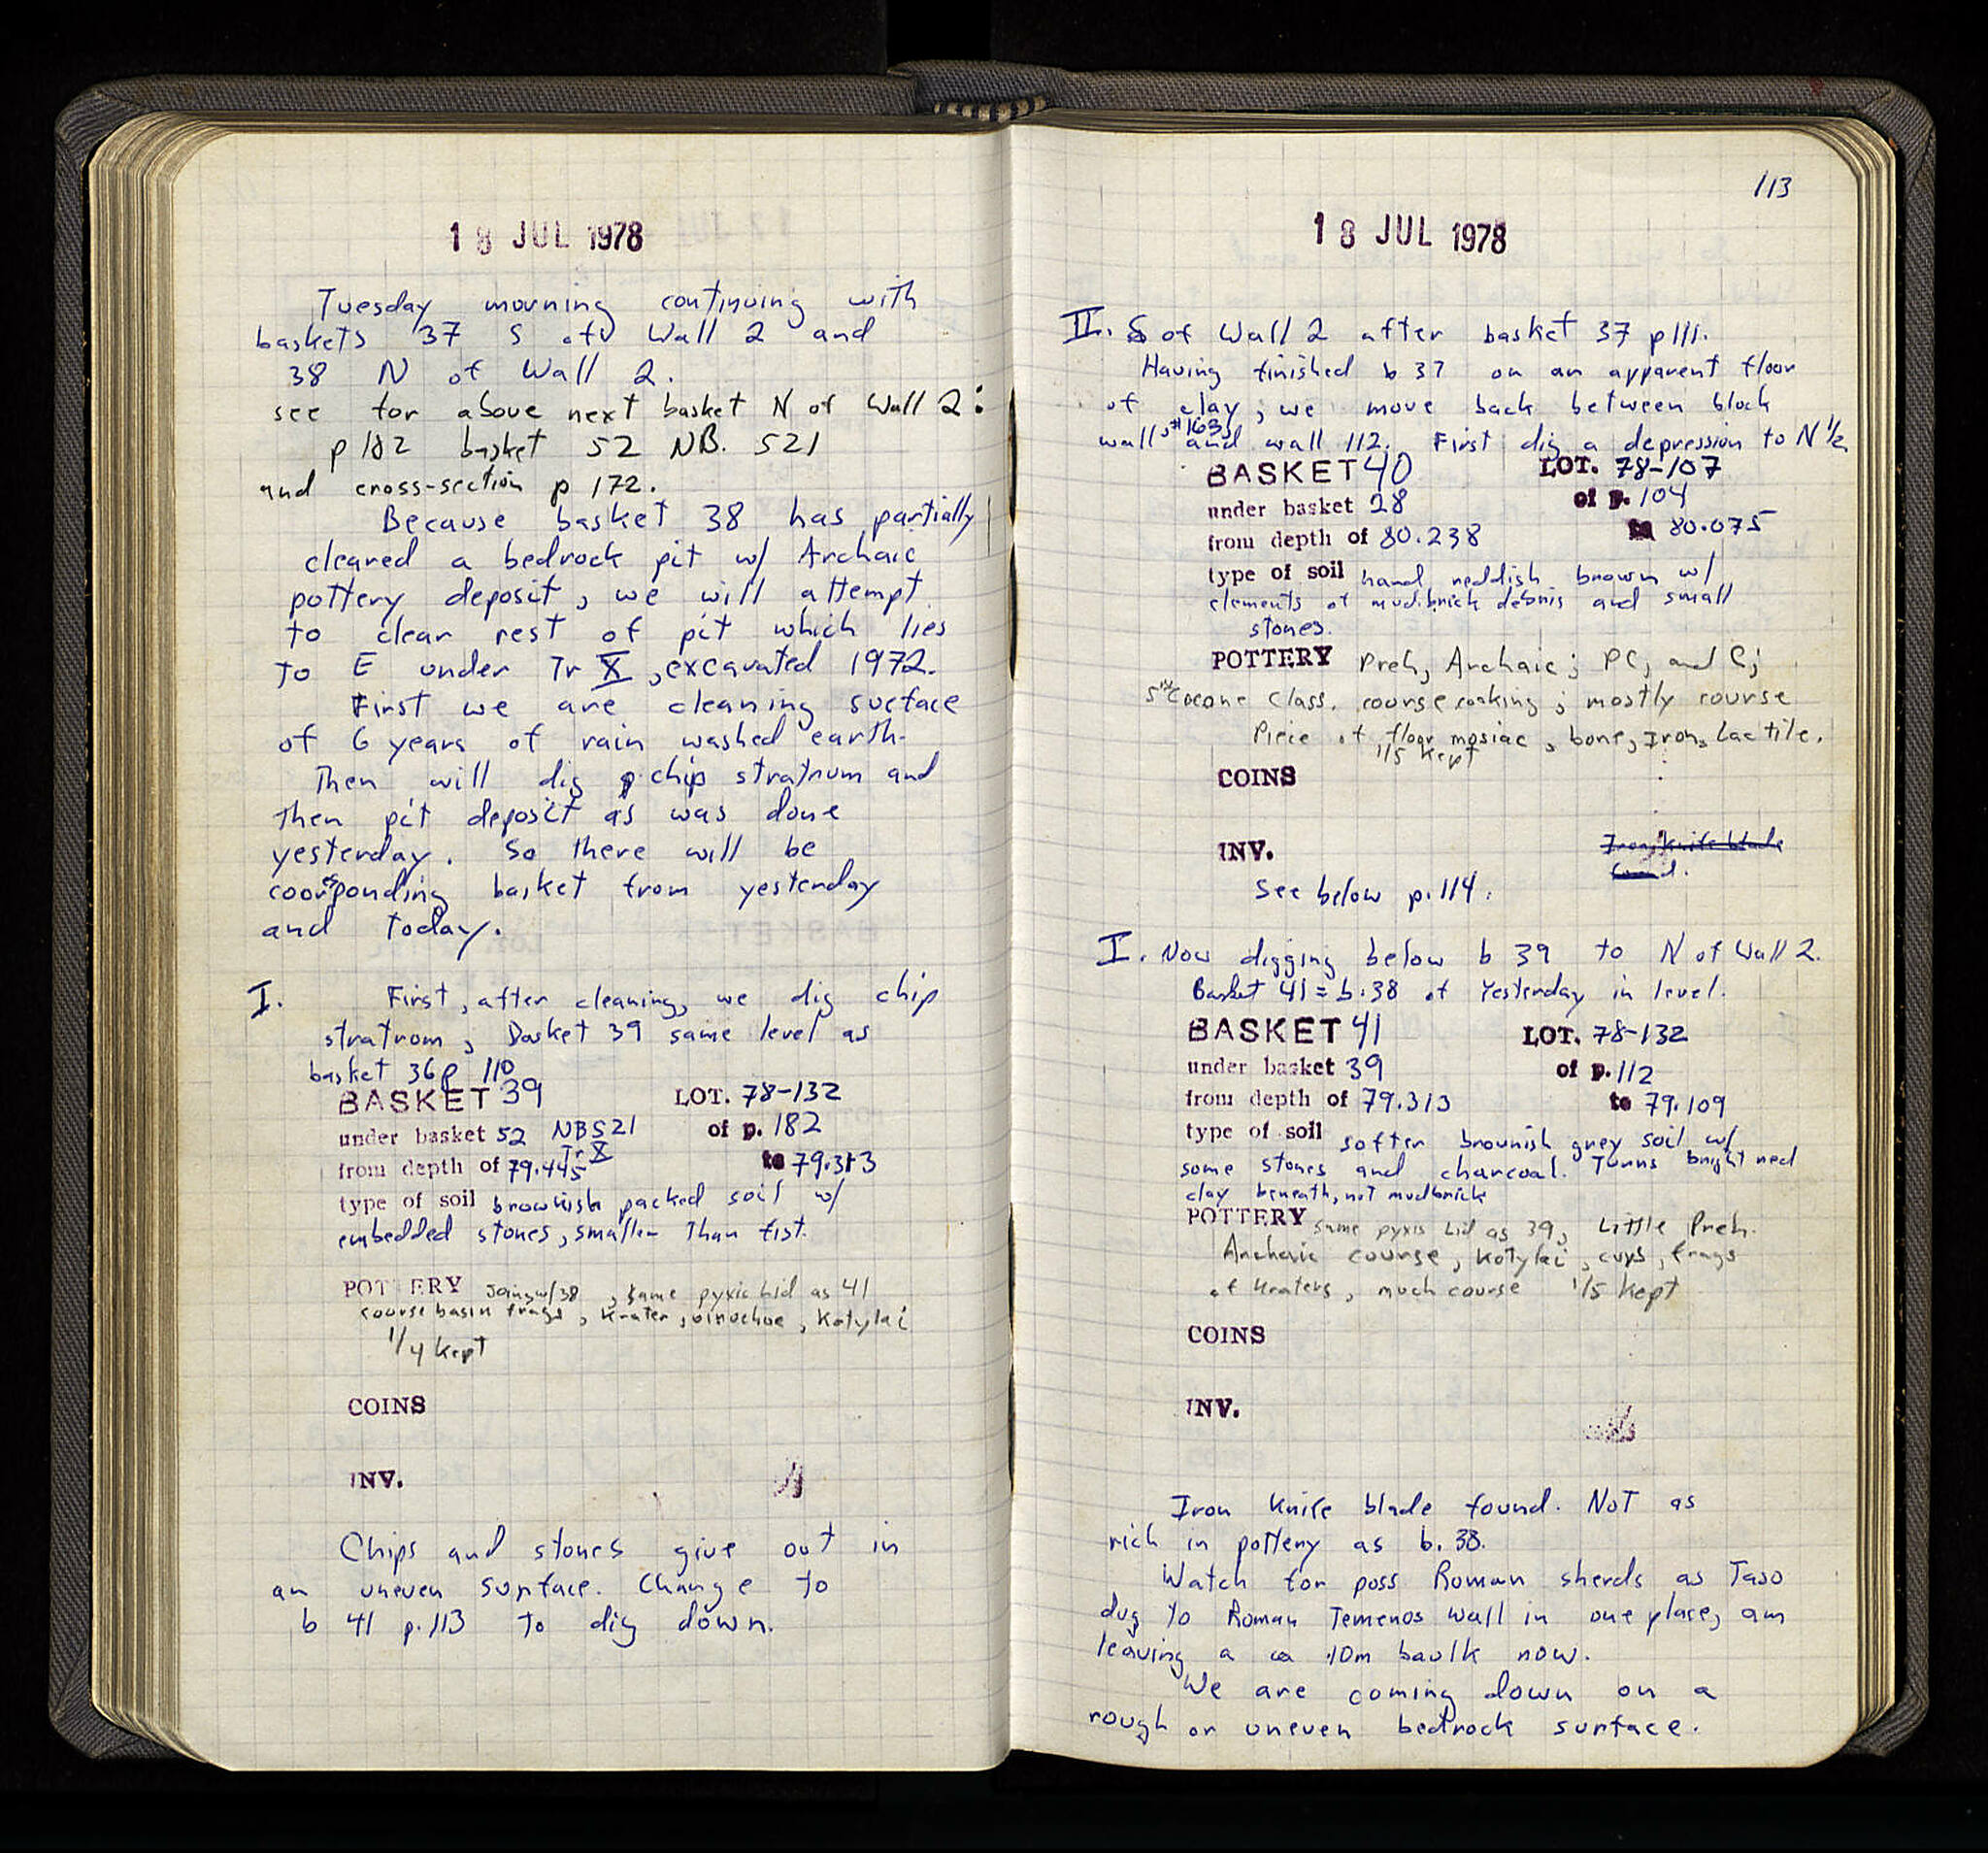 18 JUL 1978
Tuesday morning continuing with
baskets 37 S of Wall 2 and
38 N of Wall 2.
see for above next basket N of Wall 2:
p 182 basket 52 NB. 521
and cross-section p 172.
Because basket 38 has partially
cleared a bedrock pit w/ Archaic
pottery deposit, we will attempt
to clear rest of pit which lies
to E under Tr X, excavated 1972.
First we are cleaning surface
of 6 years of rain washed earth.
Then will dig chip stratnum and
then pit deposit as was done
yesterday. So there will be
cooresponding basket from yesterday
and today.
I. First, after cleaning, we dig chip
stratnom, Basket 39 same level as
basket 36 p 110
BASKET 39 LOT. 78-132
under basket 52 NB521 of p. 182
Tr X
from depth of 79.445 to 79.313
type of soil brownish packed soil w/
embedded stones, smaller than fist.
POTTERY Joins w/38, same pyxis lid as 41
course basin frags, Krater, oinochoe, Kotylai
1/4 Kept
COINS
INV.
Chips and stones give out in
an uneven surface. Change to
b 41 p. 113 to dig down.
113
18 JUL 1978
II. S of Wall 2 after basket 37 p 111.
Having finished b 37 on an apparent floor
of clay, we move back between block
wall, #163, and wall 112. First dig a depression to N 1/2
BASKET 40 LOT. 78-107
under basket 28 of p. 104
from depth of 80.238 to 80.075
type of soil hard reddish brown w/
elements of mudbrick debris and small
stones.
POTTERY Preh, Archaic; PC, and C;
5th Class. course cooking; mostly course
Piece of floor mosiac, bone, Iron, Lac tile.
1/5 Kept
COINS
INV. Iron Knife blade
found.
See below p. 114.
I. Now digging below b 39 to N of Wall 2.
Basket 41 = b. 38 of Yesterday in level.
BASKET 41 LOT. 78-132
under basket 39 of p. 112
from depth of 79.313 to 79.109
type of soil softer brownish grey soil w/
some stones and charcoal. Turns bright red
clay beneath, not mudbrick
POTTERY Same pyxis lid as 39, Little Preh.
Archaic course, Kotylai, cups, frags
of Kraters, much course 1/5 Kept
COINS
INV.
Iron Knife blade found. Not as
rich in pottery as b. 38.
Watch for poss Roman sherds as Taso
dug to Roman Temenos wall in one place, am
leaving a ca .10m baulk now.
We are coming down on a
rough or uneven bedrock surface.